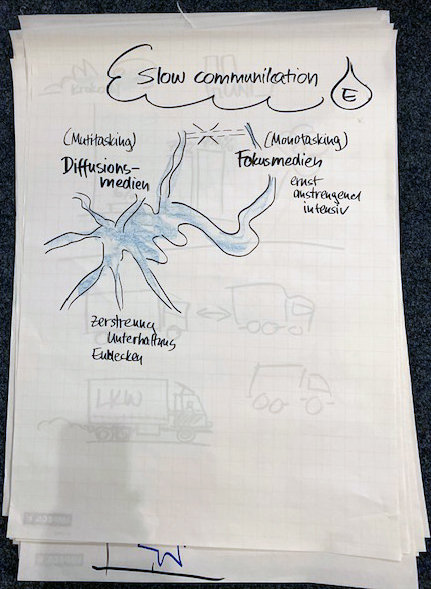 Slow communication
E
(Mutitasking)
Diffusions-
medien
(Monotasking)
Fokusmedien
ernst
anstrengend
intensiv
Zerstreuung
Unterhaltung
Entdecken
LKW